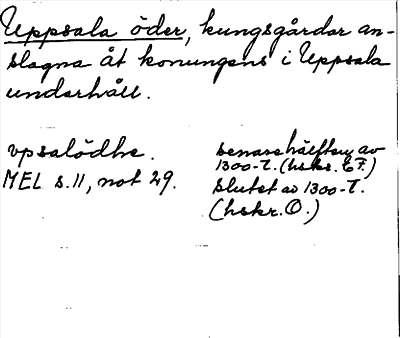 Uppsala öder, kungsgårdar an-
slagna åt konungens i Uppsala
underhåll.
vpsalödhe.
MEL s. 11, not 29.
senare hälften av
1300-t. (hskr. E F.)
slutet av 1300-t.
(hskr. O.)